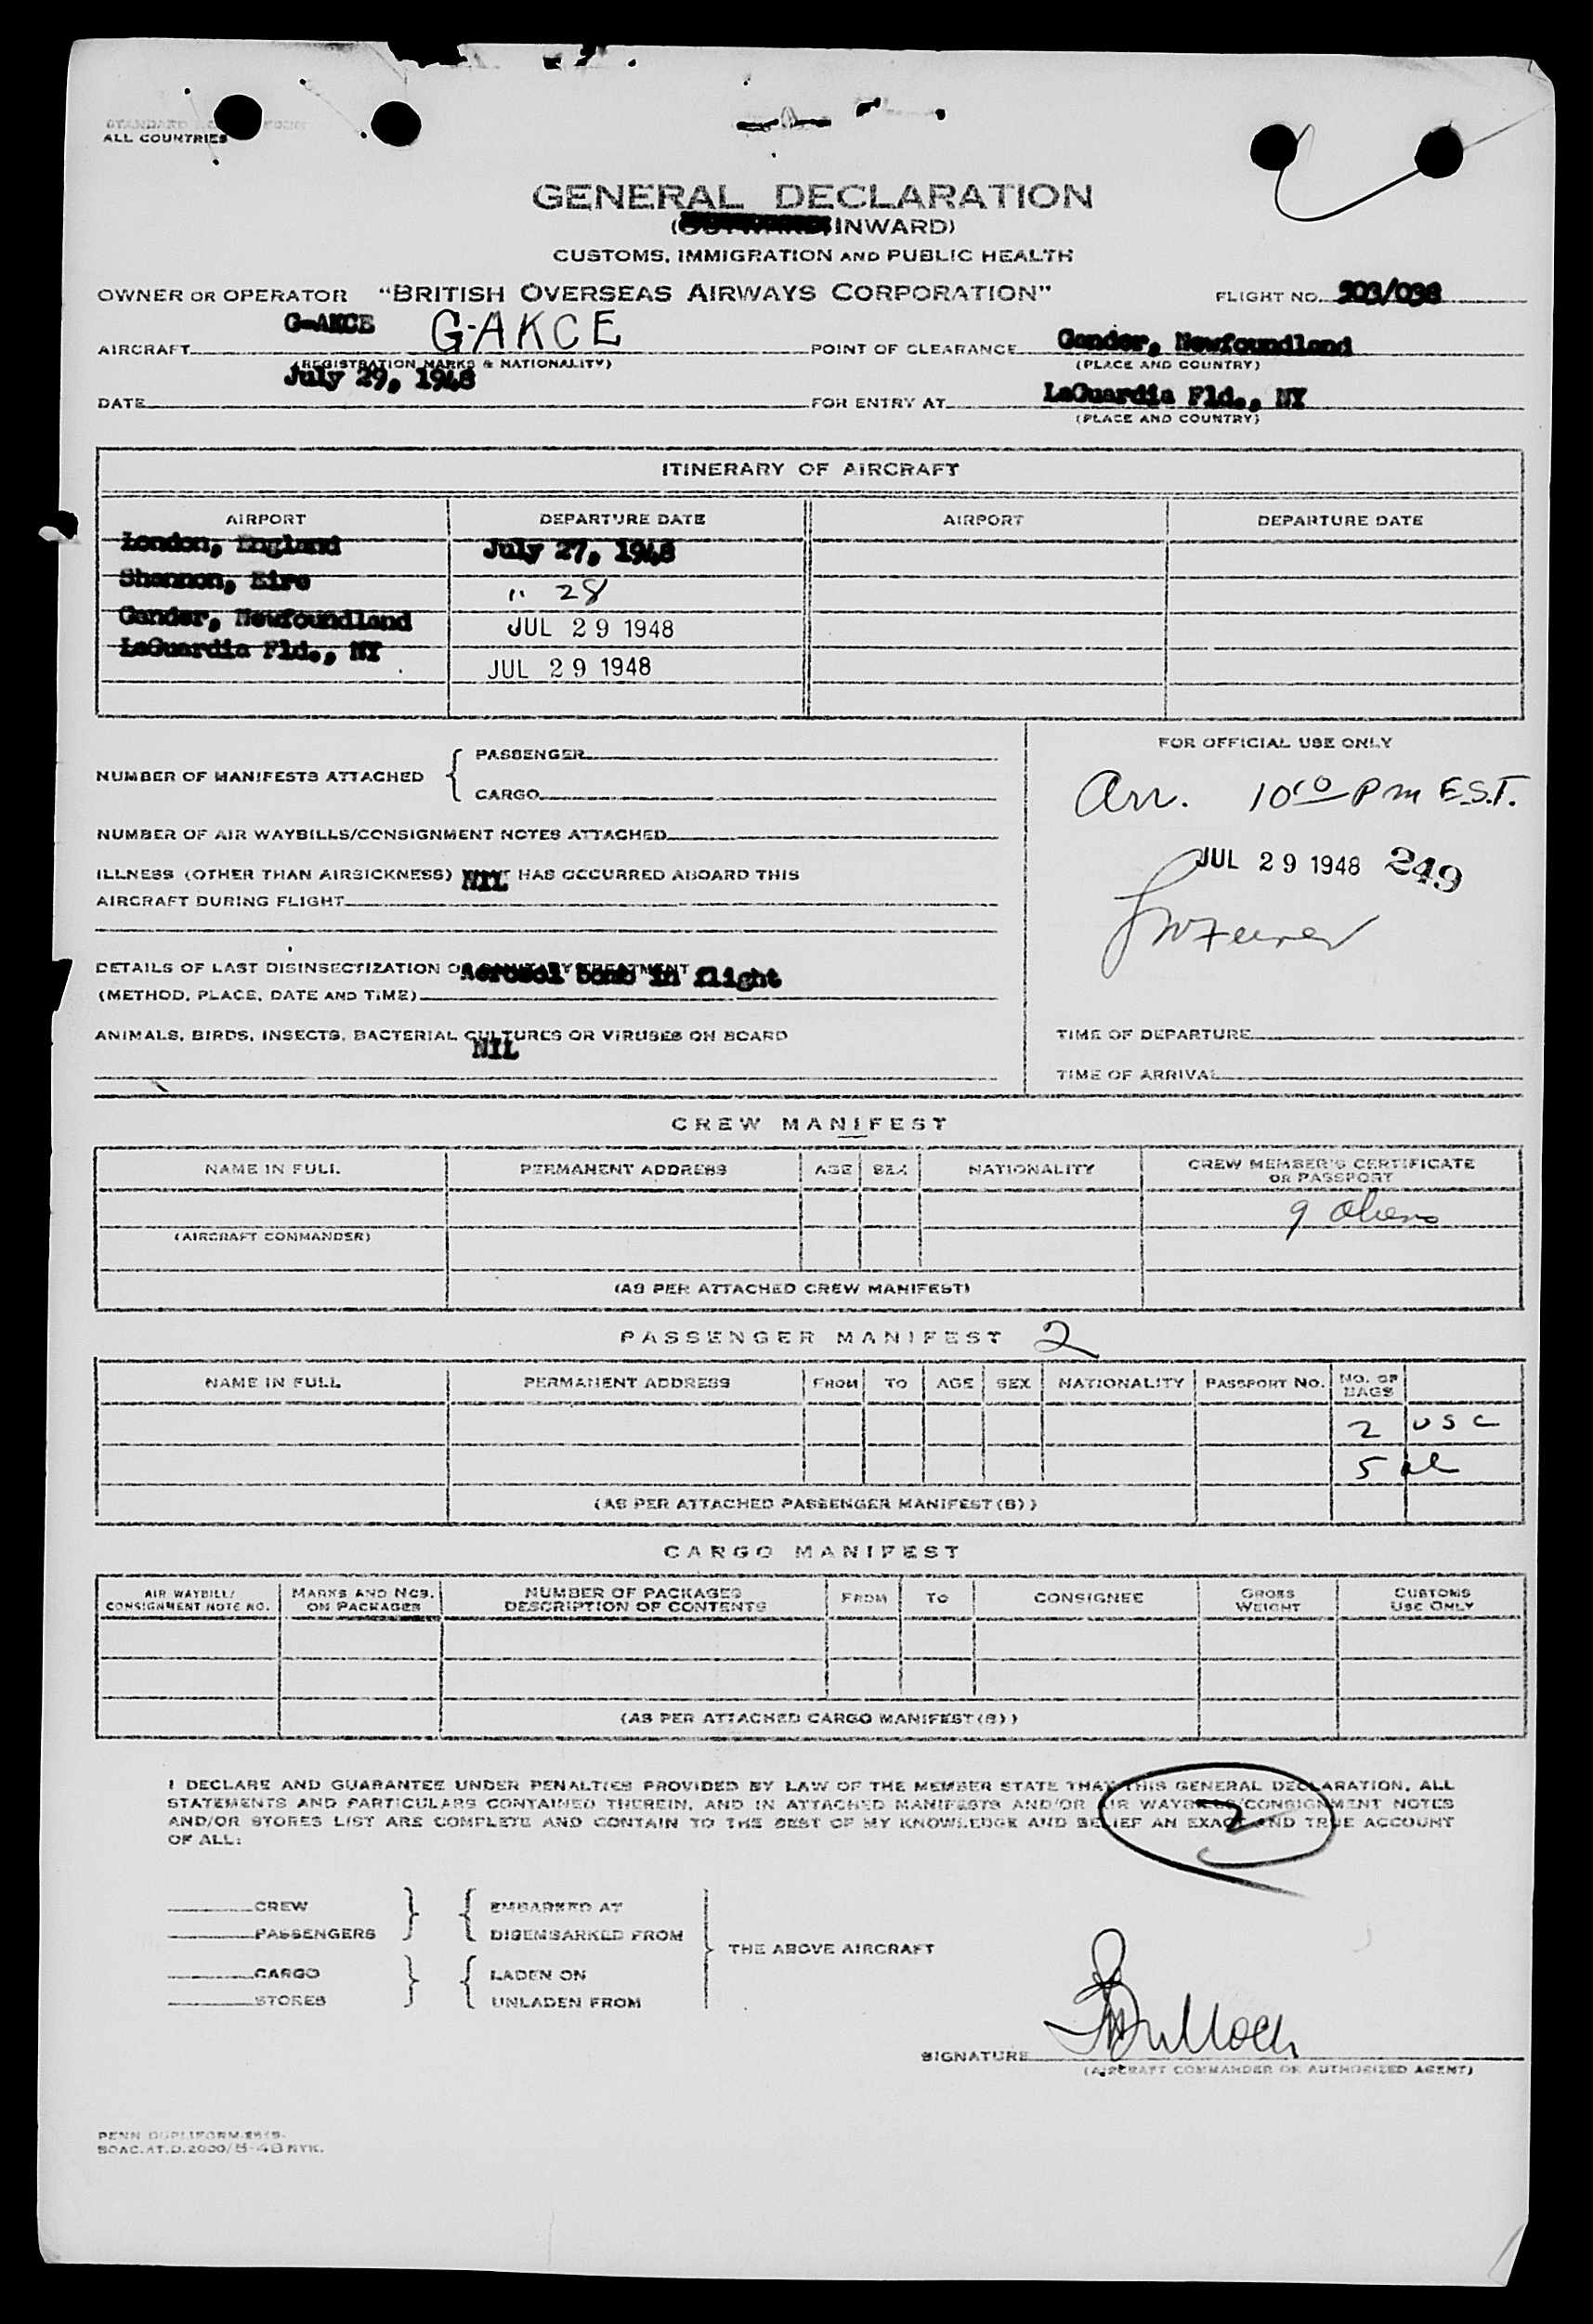 STANDARD FORM
ALL COUNTRIES
GENERAL DECLARATION
(OUTWARD/INWARD)
CUSTOMS, IMMIGRATION AND PUBLIC HEALTH
OWNER OR OPERATOR "BRITISH OVERSEAS AIRWAYS CORPORATION" FLIGHT NO. 503/038
G-AKCE G-AKCE
AIRCRAFT POINT OF CLEARANCE Gander, Newfoundland
(REGISTRATION MARKS & NATIONALITY) (PLACE AND COUNTRY)
July 29, 1948
DATE FOR ENTRY AT LaGuardia Fld., NY
(PLACE AND COUNTRY)
ITINERARY OF AIRCRAFT
AIRPORT DEPARTURE DATE AIRPORT DEPARTURE DATE
London, England July 27, 1948
Shannon, Eire " 28
Gander, Newfoundland JUL 29 1948
LaGuardia Fld., NY JUL 29 1948
NUMBER OF MANIFESTS ATTACHED { PASSENGER
CARGO
NUMBER OF AIR WAYBILLS/CONSIGNMENT NOTES ATTACHED
ILLNESS (OTHER THAN AIRSICKNESS) NIL HAS OCCURRED ABOARD THIS
AIRCRAFT DURING FLIGHT
DETAILS OF LAST DISINSECTIZATION OR SANITARY TREATMENT Aerosol bomb in flight
(METHOD, PLACE, DATE AND TIME)
ANIMALS, BIRDS, INSECTS, BACTERIAL CULTURES OR VIRUSES ON BOARD
NIL
FOR OFFICIAL USE ONLY
Arr. 10 10 Pm E.S.T.
JUL 29 1948 249
TIME OF DEPARTURE
TIME OF ARRIVAL
CREW MANIFEST
NAME IN FULL PERMANENT ADDRESS AGE SEX NATIONALITY CREW MEMBER'S CERTIFICATE OR PASSPORT
9 aliens
(AIRCRAFT COMMANDER)
(AS PER ATTACHED CREW MANIFEST)
PASSENGER MANIFEST 2
NAME IN FULL PERMANENT ADDRESS FROM TO AGE SEX NATIONALITY PASSPORT NO. NO. OF BAGS
2 USC
5 al
(AS PER ATTACHED PASSENGER MANIFEST(S))
CARGO MANIFEST
AIR WAYBILL/CONSIGNMENT NOTE NO. MARKS AND NOS. ON PACKAGES NUMBER OF PACKAGES DESCRIPTION OF CONTENTS FROM TO CONSIGNEE GROSS WEIGHT CUSTOMS USE ONLY
(AS PER ATTACHED CARGO MANIFEST(S))
I DECLARE AND GUARANTEE UNDER PENALTIES PROVIDED BY LAW OF THE MEMBER STATE THAT THIS GENERAL DECLARATION, ALL
STATEMENTS AND PARTICULARS CONTAINED THEREIN, AND IN ATTACHED MANIFESTS AND/OR AIR WAYBILLS/CONSIGNMENT NOTES
AND/OR STORES LIST ARE COMPLETE AND CONTAIN TO THE BEST OF MY KNOWLEDGE AND BELIEF AN EXACT AND TRUE ACCOUNT
OF ALL:
2
CREW } { EMBARKED AT
PASSENGERS DISEMBARKED FROM
THE ABOVE AIRCRAFT
CARGO } { LADEN ON
STORES UNLADEN FROM
SIGNATURE
(AIRCRAFT COMMANDER OR AUTHORIZED AGENT)
PENN DUPLIFORM
BOAC.AT.D.2000/5-48 NYK.